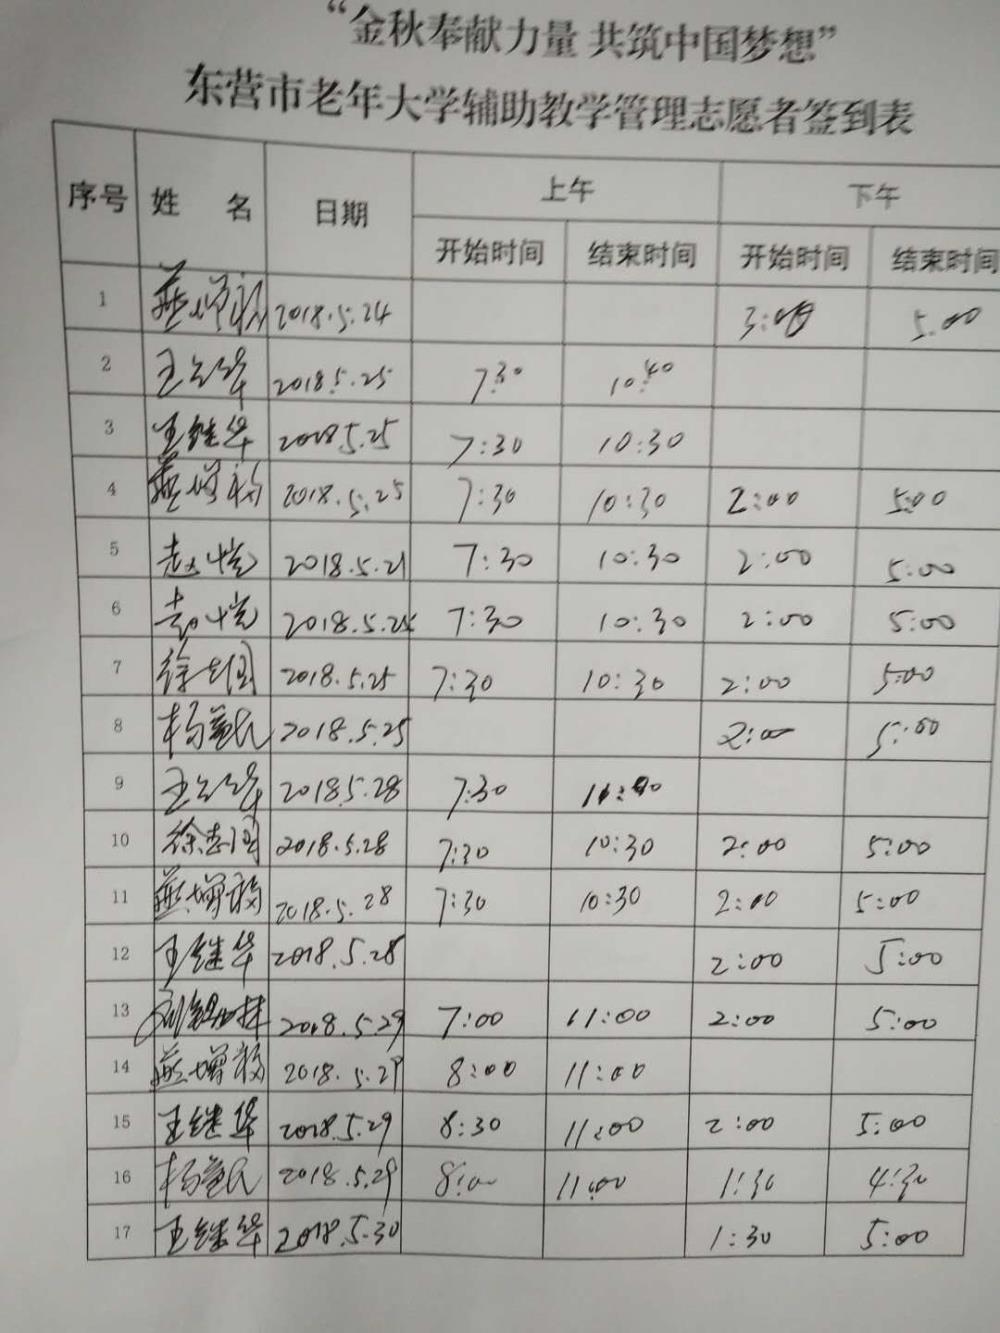 “金秋奉献力量 共筑中国梦想”
东营市老年大学辅助教学管理志愿者签到表
序号 姓 名 日期 上午 下午
开始时间 结束时间 开始时间 结束时间
1 2018.5.24 3:00 5:00
2 2018.5.25 7:30 10:40
3 王继华 2018.5.25 7:30 10:30
4 2018.5.25 7:30 10:30 2:00 5:00
5 2018.5.21 7:30 10:30 2:00 5:00
6 2018.5.25 7:30 10:30 2:00 5:00
7 2018.5.25 7:30 10:30 2:00 5:00
8 2018.5.25 2:00 5:00
9 2018.5.28 7:30
10 徐志国 2018.5.28 7:30 10:30 2:00 5:00
11 2018.5.28 7:30 10:30 2:00 5:00
12 王继华 2018.5.28 2:00 5:00
13 2018.5.29 7:00 11:00 2:00 5:00
14 2018.5.29 8:00 11:00
15 王继华 2018.5.29 8:30 11:00 2:00 5:00
16 2018.5.29 8:00 11:00 1:30 4:30
17 王继华 2018.5.30 1:30 5:00